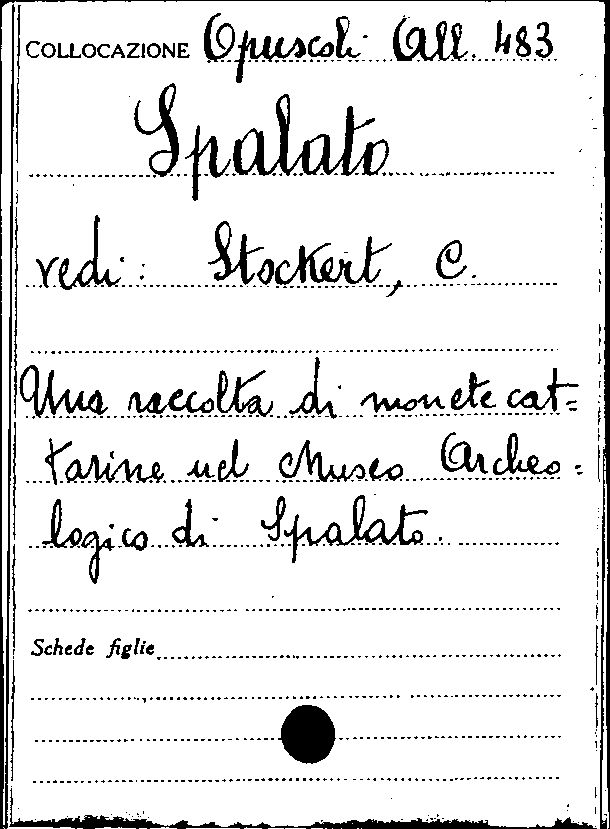 COLLOCAZIONE Opuscoli All. 483
Spalato
vedi: Stockert, C.
Una raccolta di monete cat=
tarine nel Museo Archeo=
logico di Spalato.
Schede figlie